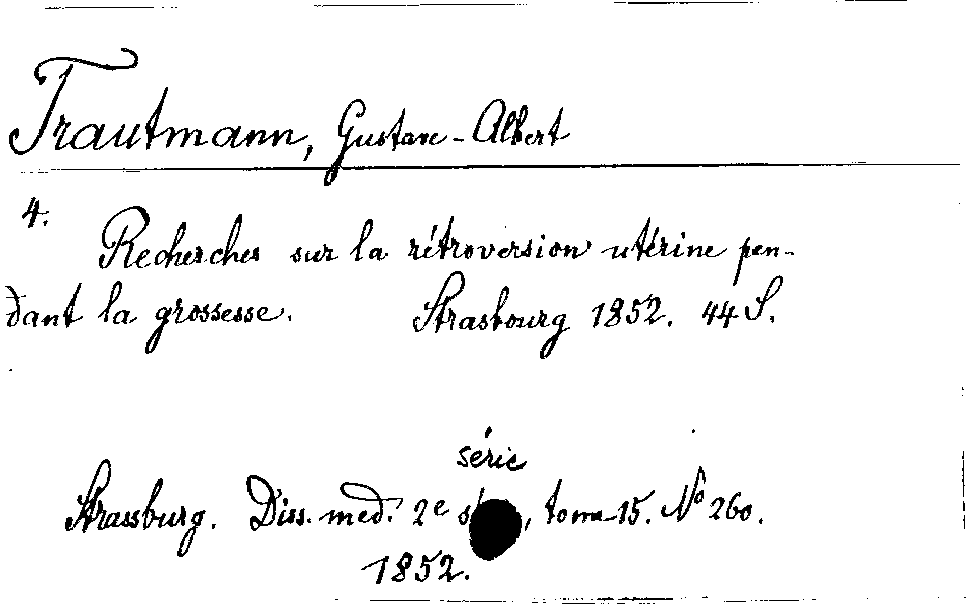 Trautmann, Gustave-Albert
4.
Recherches sur la rétroversion utérine pen-
dant la grossesse. Strasbourg 1852. 44 S.
série
Strassburg. Diss. med. 2e s, tome 15. No 260.
1852.